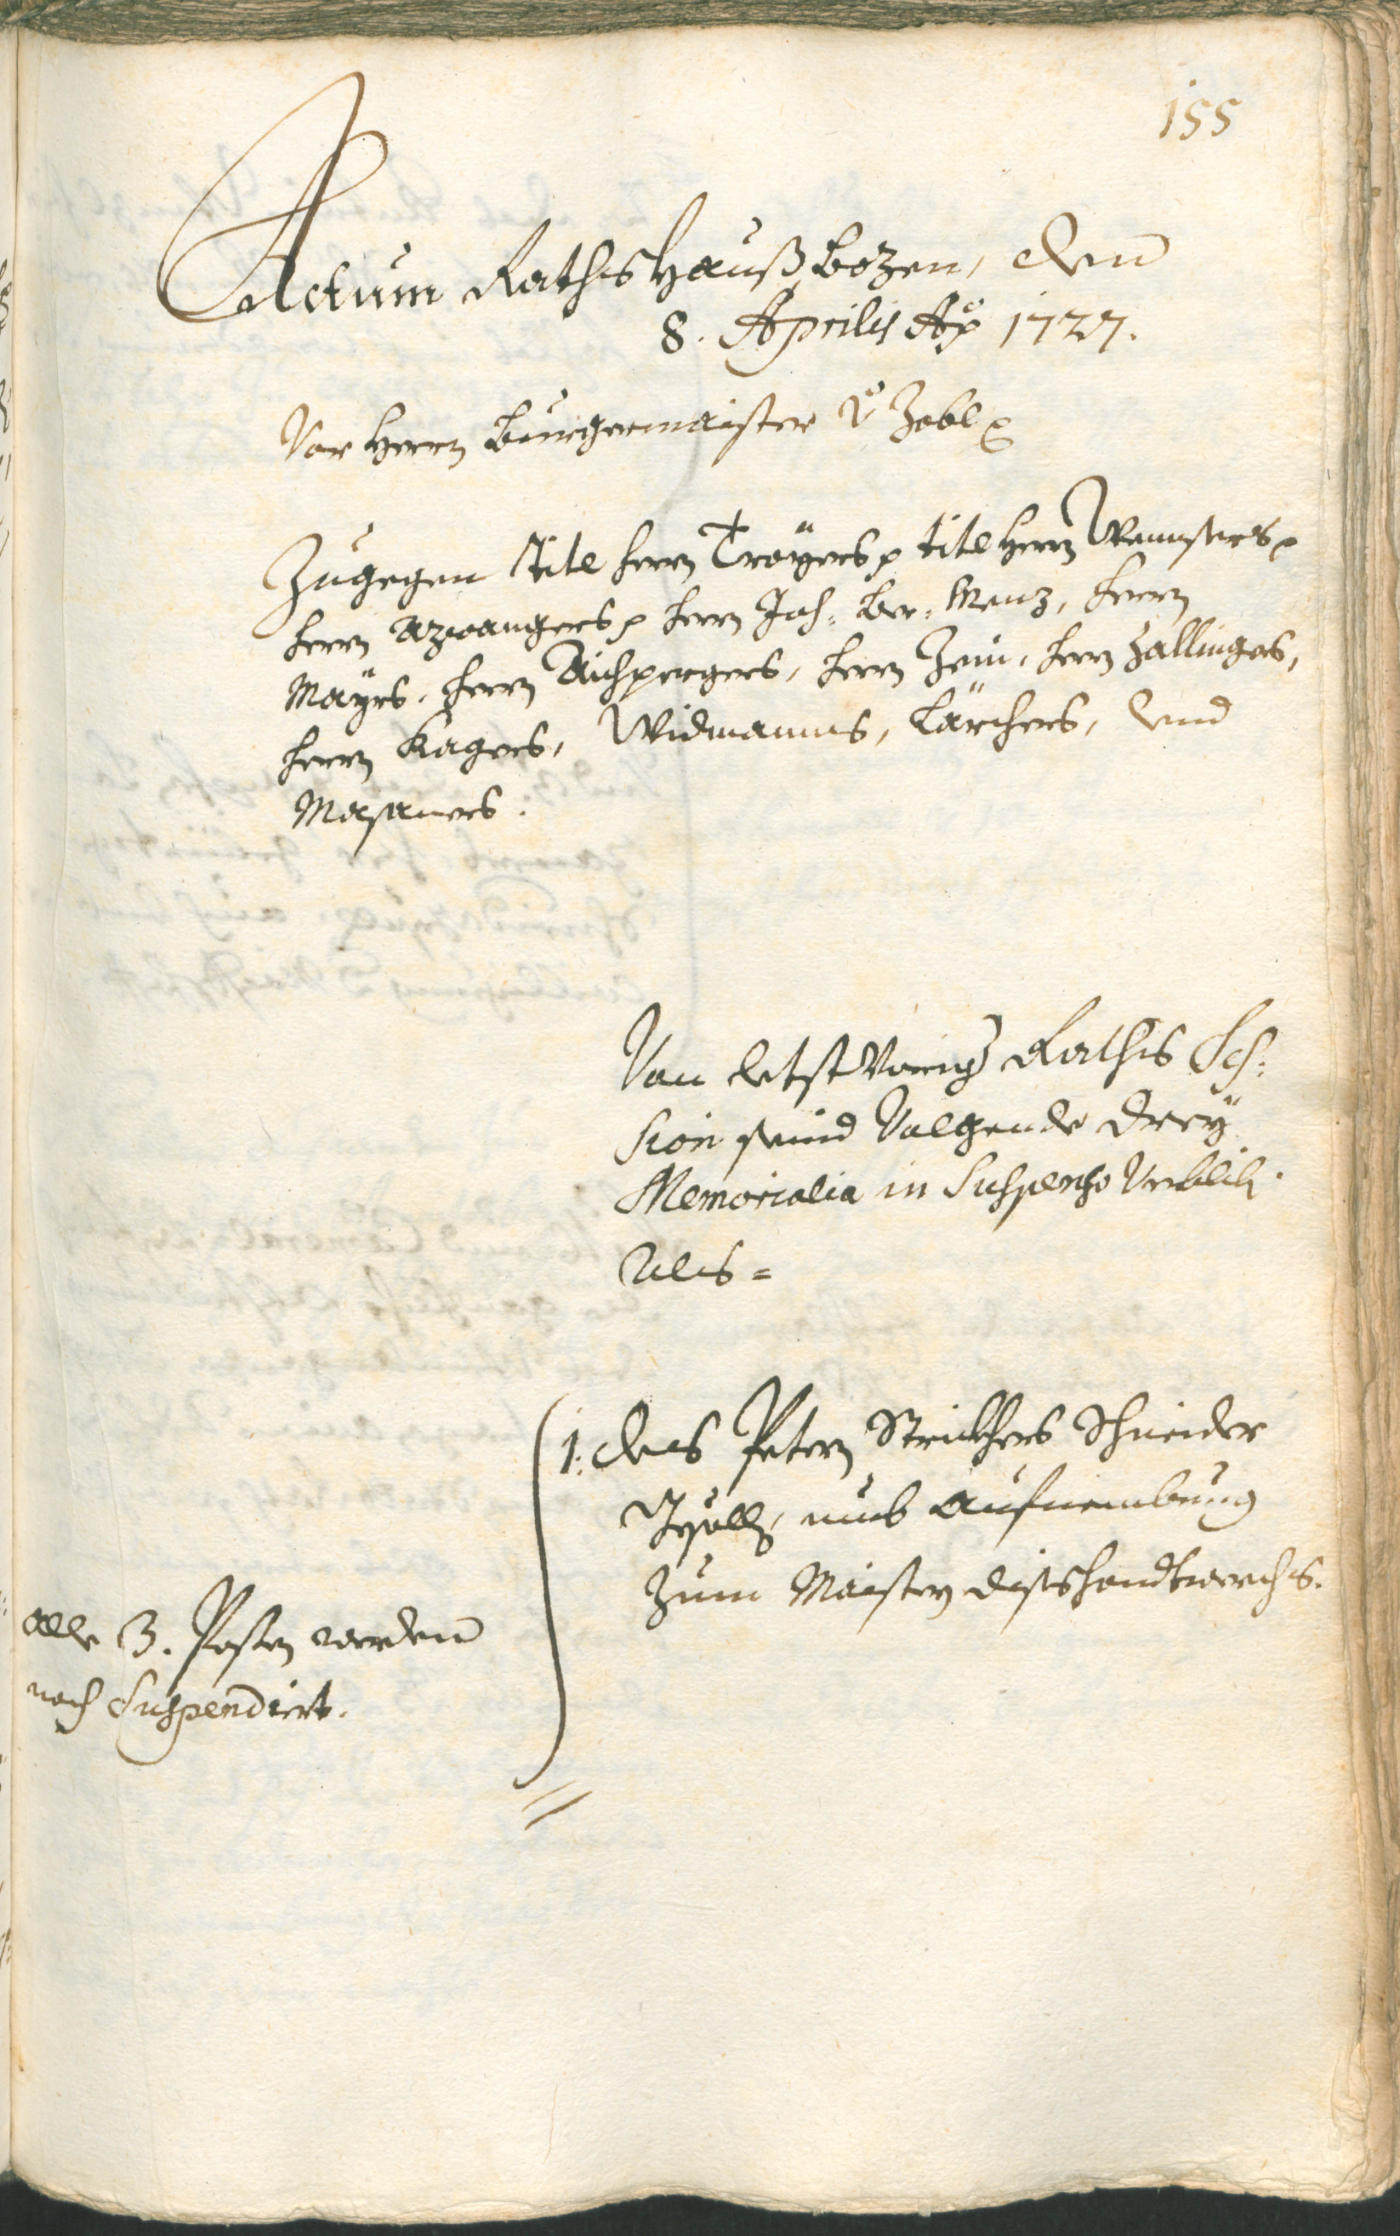 155
Actum Rathshauß Bozen, den
8. Aprilis Ao 1727.
Vor Herrn Burgermaister v Zobl
Zugegen Titl Herrn Troyers p titl Herrn
Herrn Azwangers p Herrn Joh: Menz, Herrn
Mayrs, Herrn Aichpergers, Herrn Zein, Herrn Zallingers,
Herrn Kagers, Widmanns, Lärchers, vnd
Masaners.
Von letst vorig Raths Ses=
sion seind volgende drey
Memorialia in Suspenso verblib.
Als =
1. des Petern Strickhers Schneider
Gsölln, umb aufnembung
zum Maister diss handtwerchs.
alle 3. Posten werden
noch Suspendiert.